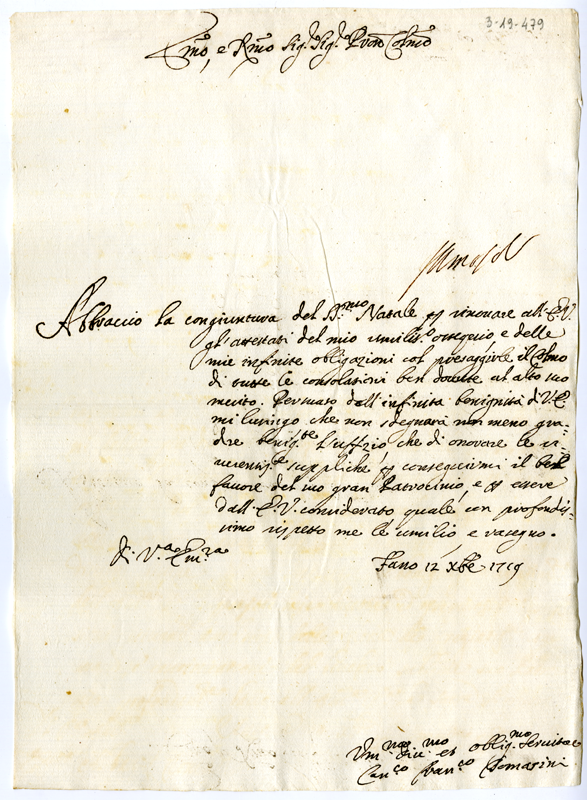 3-19-479
Emo, e Rmo Sig.r Sig.r Pron Colmo
Abbraccio la congiuntura del S.mo Natale p rinovare all'E.V.
gl'attestati del mio umilis.o ossequio e delle
mie infinite obligazioni col presagirle il Colmo
di tutte le consolazioni ben dovute al alto suo
merito. Persuaso dall'infinita benignità di V.E.
mi lusingo che non sdegnarà non meno gra-
dire benig.te l'uffizio che di onorare le ri-
verentis.e suppliche p conseguirmi il
favore del suo gran Patrocinio, e p essere
dall'E.V. considerato quale con profondis-
simo rispetto me le umilio e rasegno.
Di V.a Em.za
Fano 12 Xbre 1719
Um.mo Div.mo et oblig.mo Servitore
Can.co Fran.co Tomasini